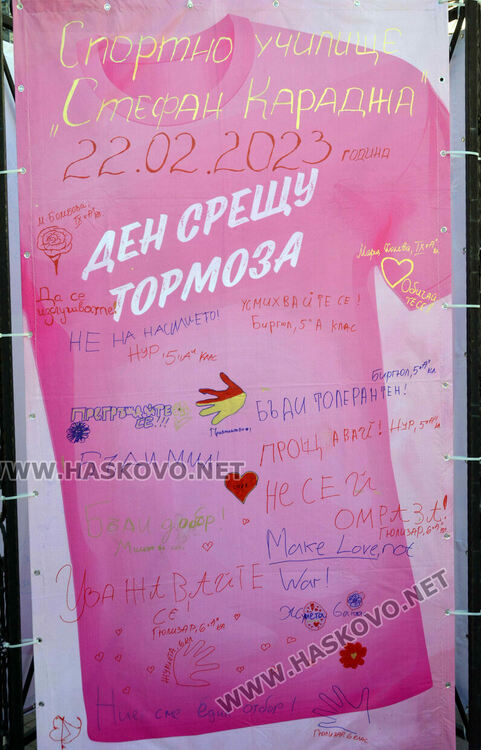 Спортно училище
„Стефан Караджа"
22.02.2023 година
ДЕН СРЕЩУ
ТОРМОЗА
Да се
изслушваме!
Обичай
те се!
НЕ НА НАСИЛИЕТО!
НУР, 5"А" клас
УСМИХВАЙТЕ СЕ!
Биргюл, 5"А клас
Биргюл, 5"А" кл
ПРЕГРЪЩАЙТЕ
СЕ!!!
БЪДИ ТОЛЕРАНТЕН!
ПРОЩАВАЙ! НУР, 5"А" кл
WWW.HASKOVO.NET
Love
НЕ СЕ Й
ОМРАЗА!
ГЮЛИЗАР, 6"А" кл
Бъди добър!
Make Love, not
War!
УВАЖАВАЙТЕ
СЕ!
ГЮЛИЗАР, 6"А" кл
WWW.HASKOVO.NET
Ние сме един отбор!
ГЮЛИЗАР 6 клас